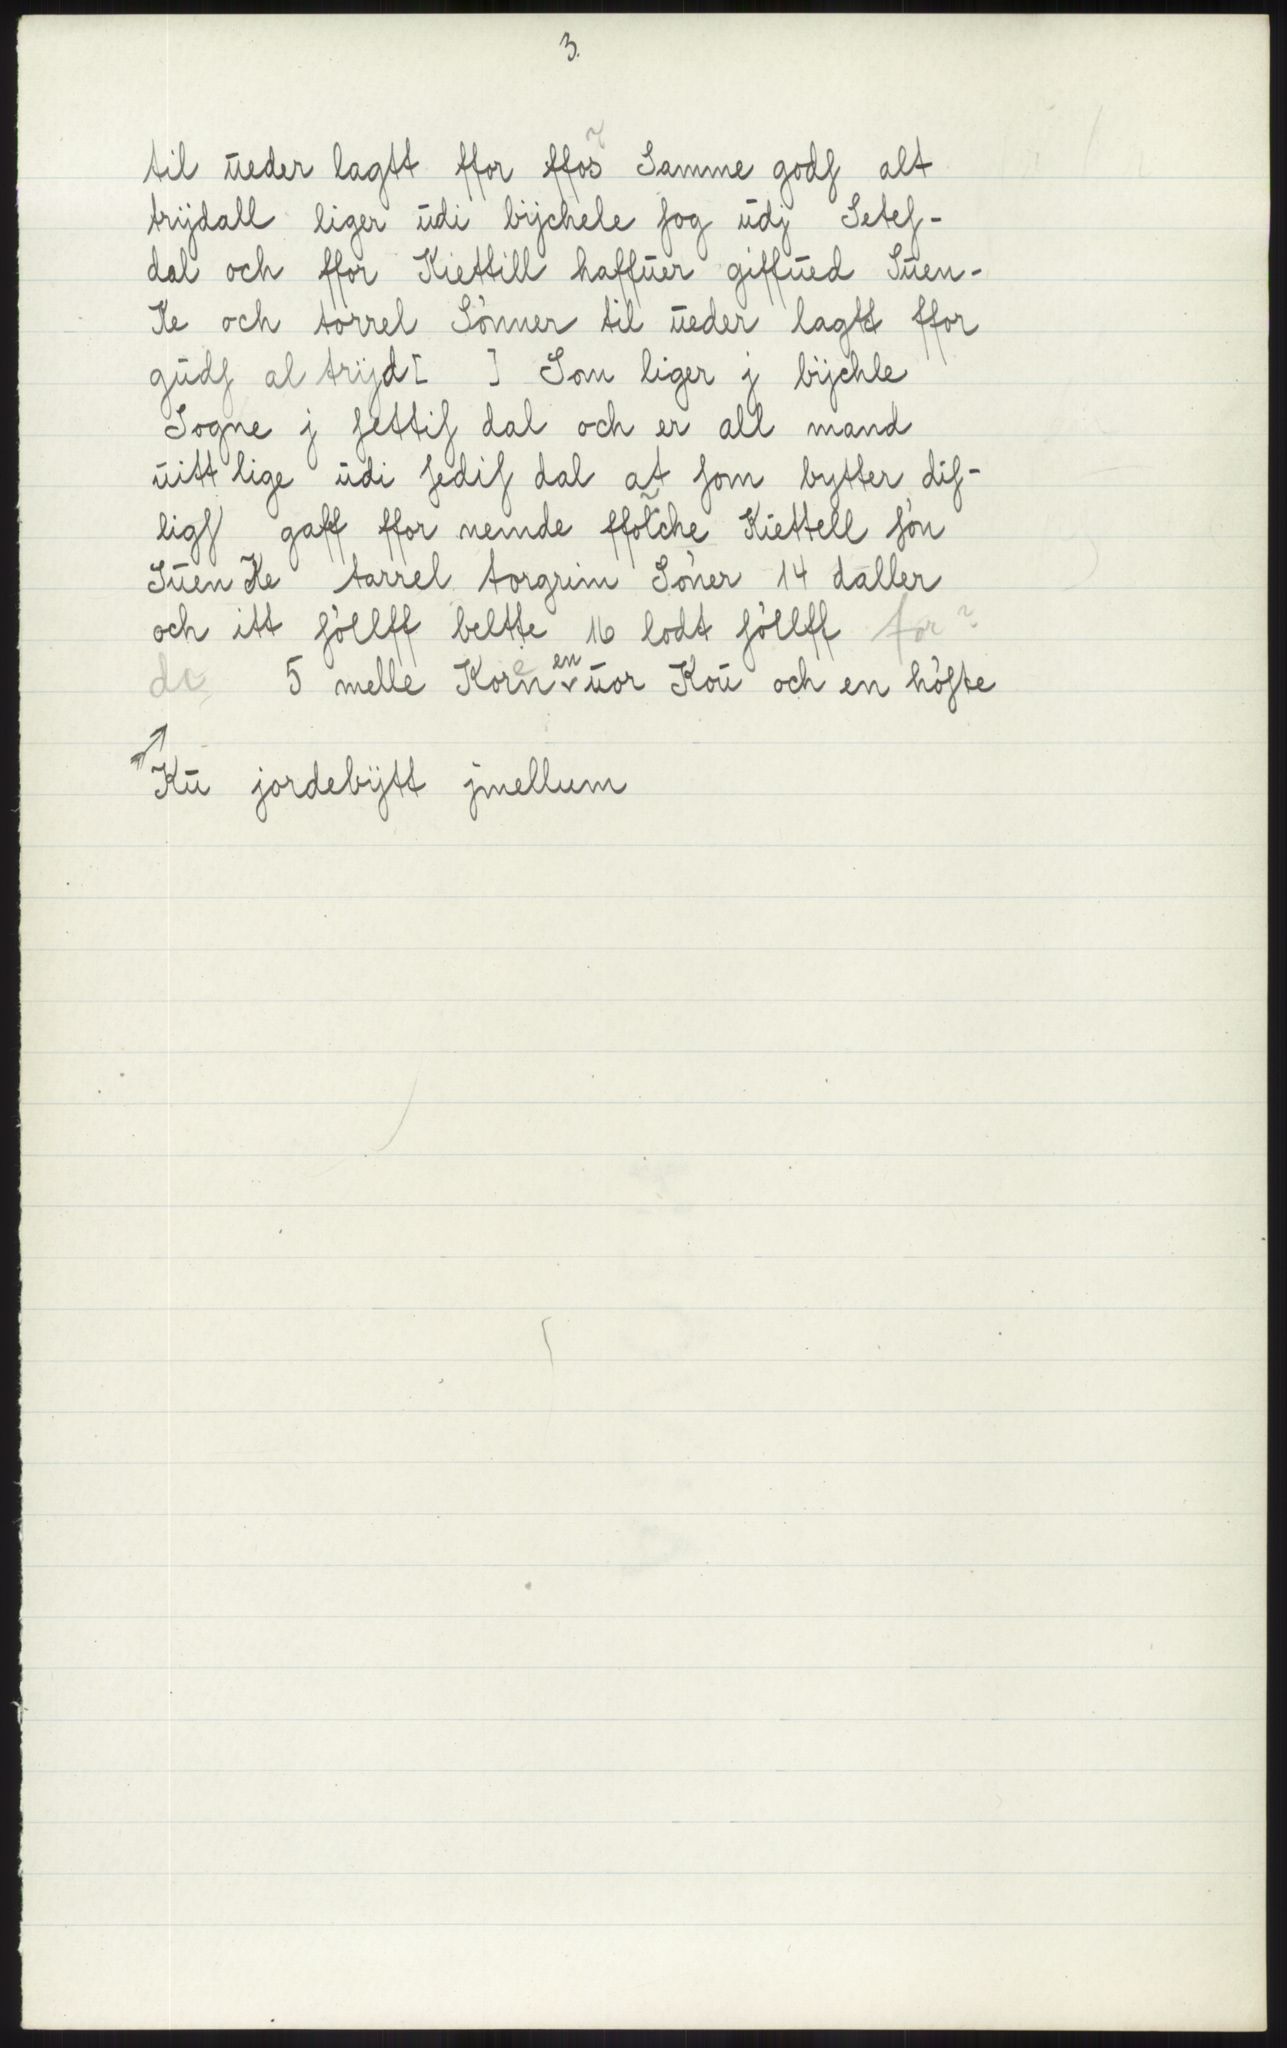 3.
til ūeder lagtt ffor ffos̃ Samme godſ alt
trÿdall liger ūdi bÿchele ſog ūdj Seteſ-
dal och ffor Kiettill haffūer giffūed Sūen-
Ke och torrel Sönner til ūeder lagtt ffor
gūdſ al trÿd[ ] Som liger j bÿchle
Sogne j ſettiſ dal och er all mand
uitt lige ūdi ſediſ dal at ſom bytter diſ-
ligſ gaff ffor nemde ffolche Kiettell ſön
Sūen Ke tarrel torgrim Söner 14 daller
och itt ſöllff beltte 16 lodt ſöllff for ~
de 5 melle Korn en ūor Koū och en höſte
Kū jordebÿtt jmellum